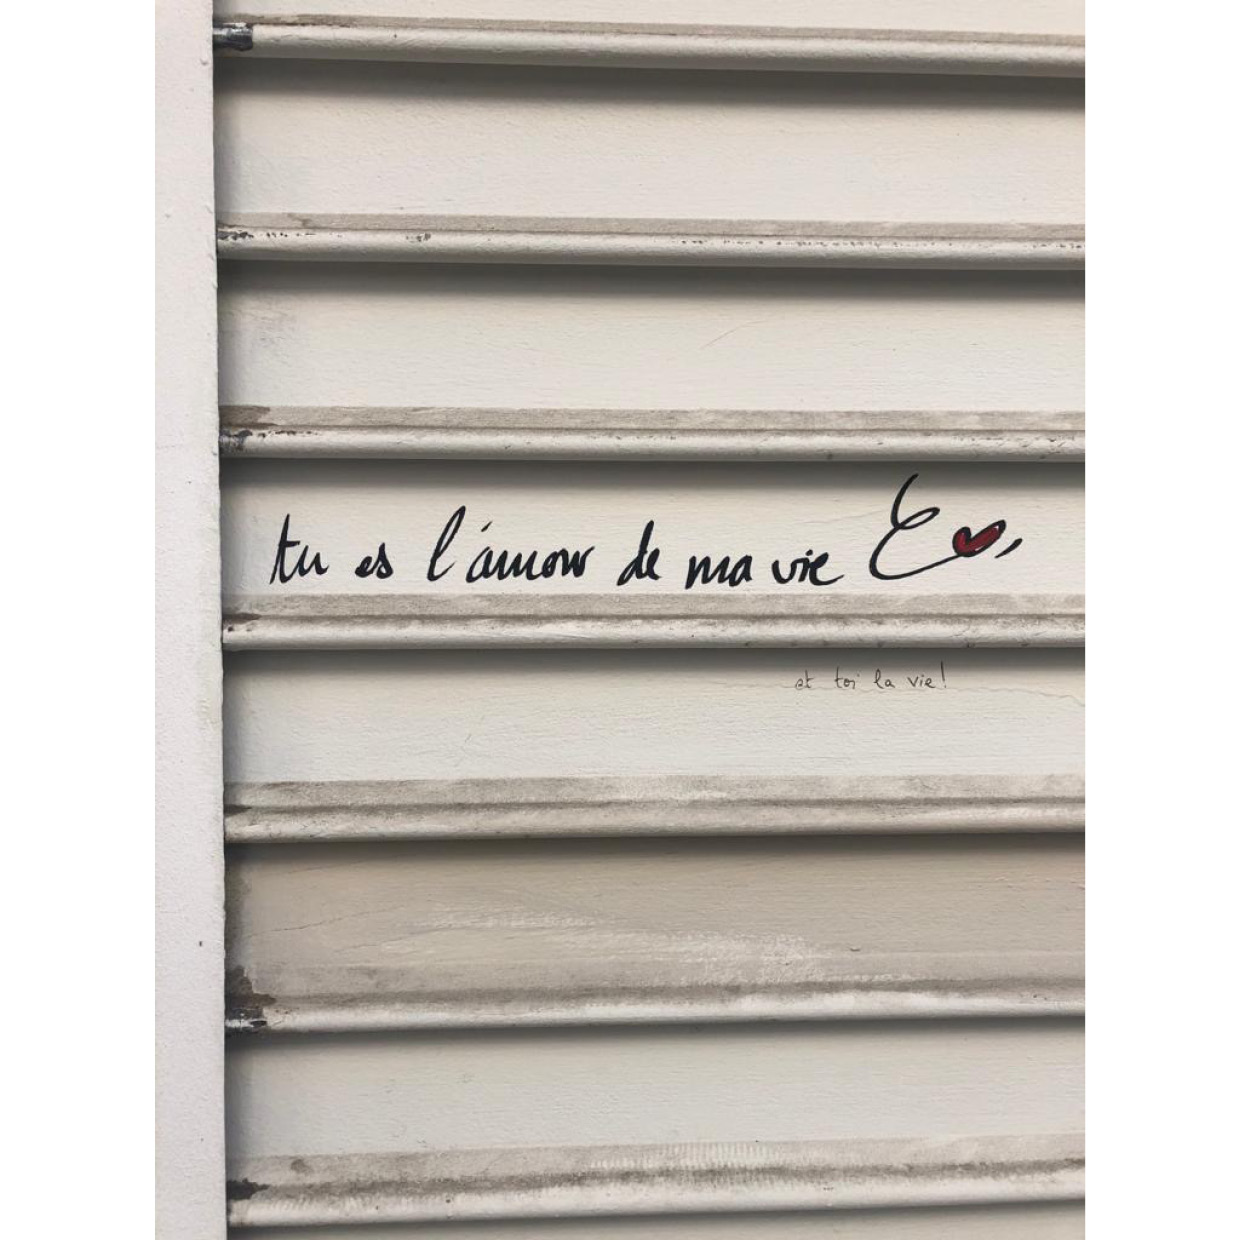 tu es l'amour de ma vie
et toi la vie!